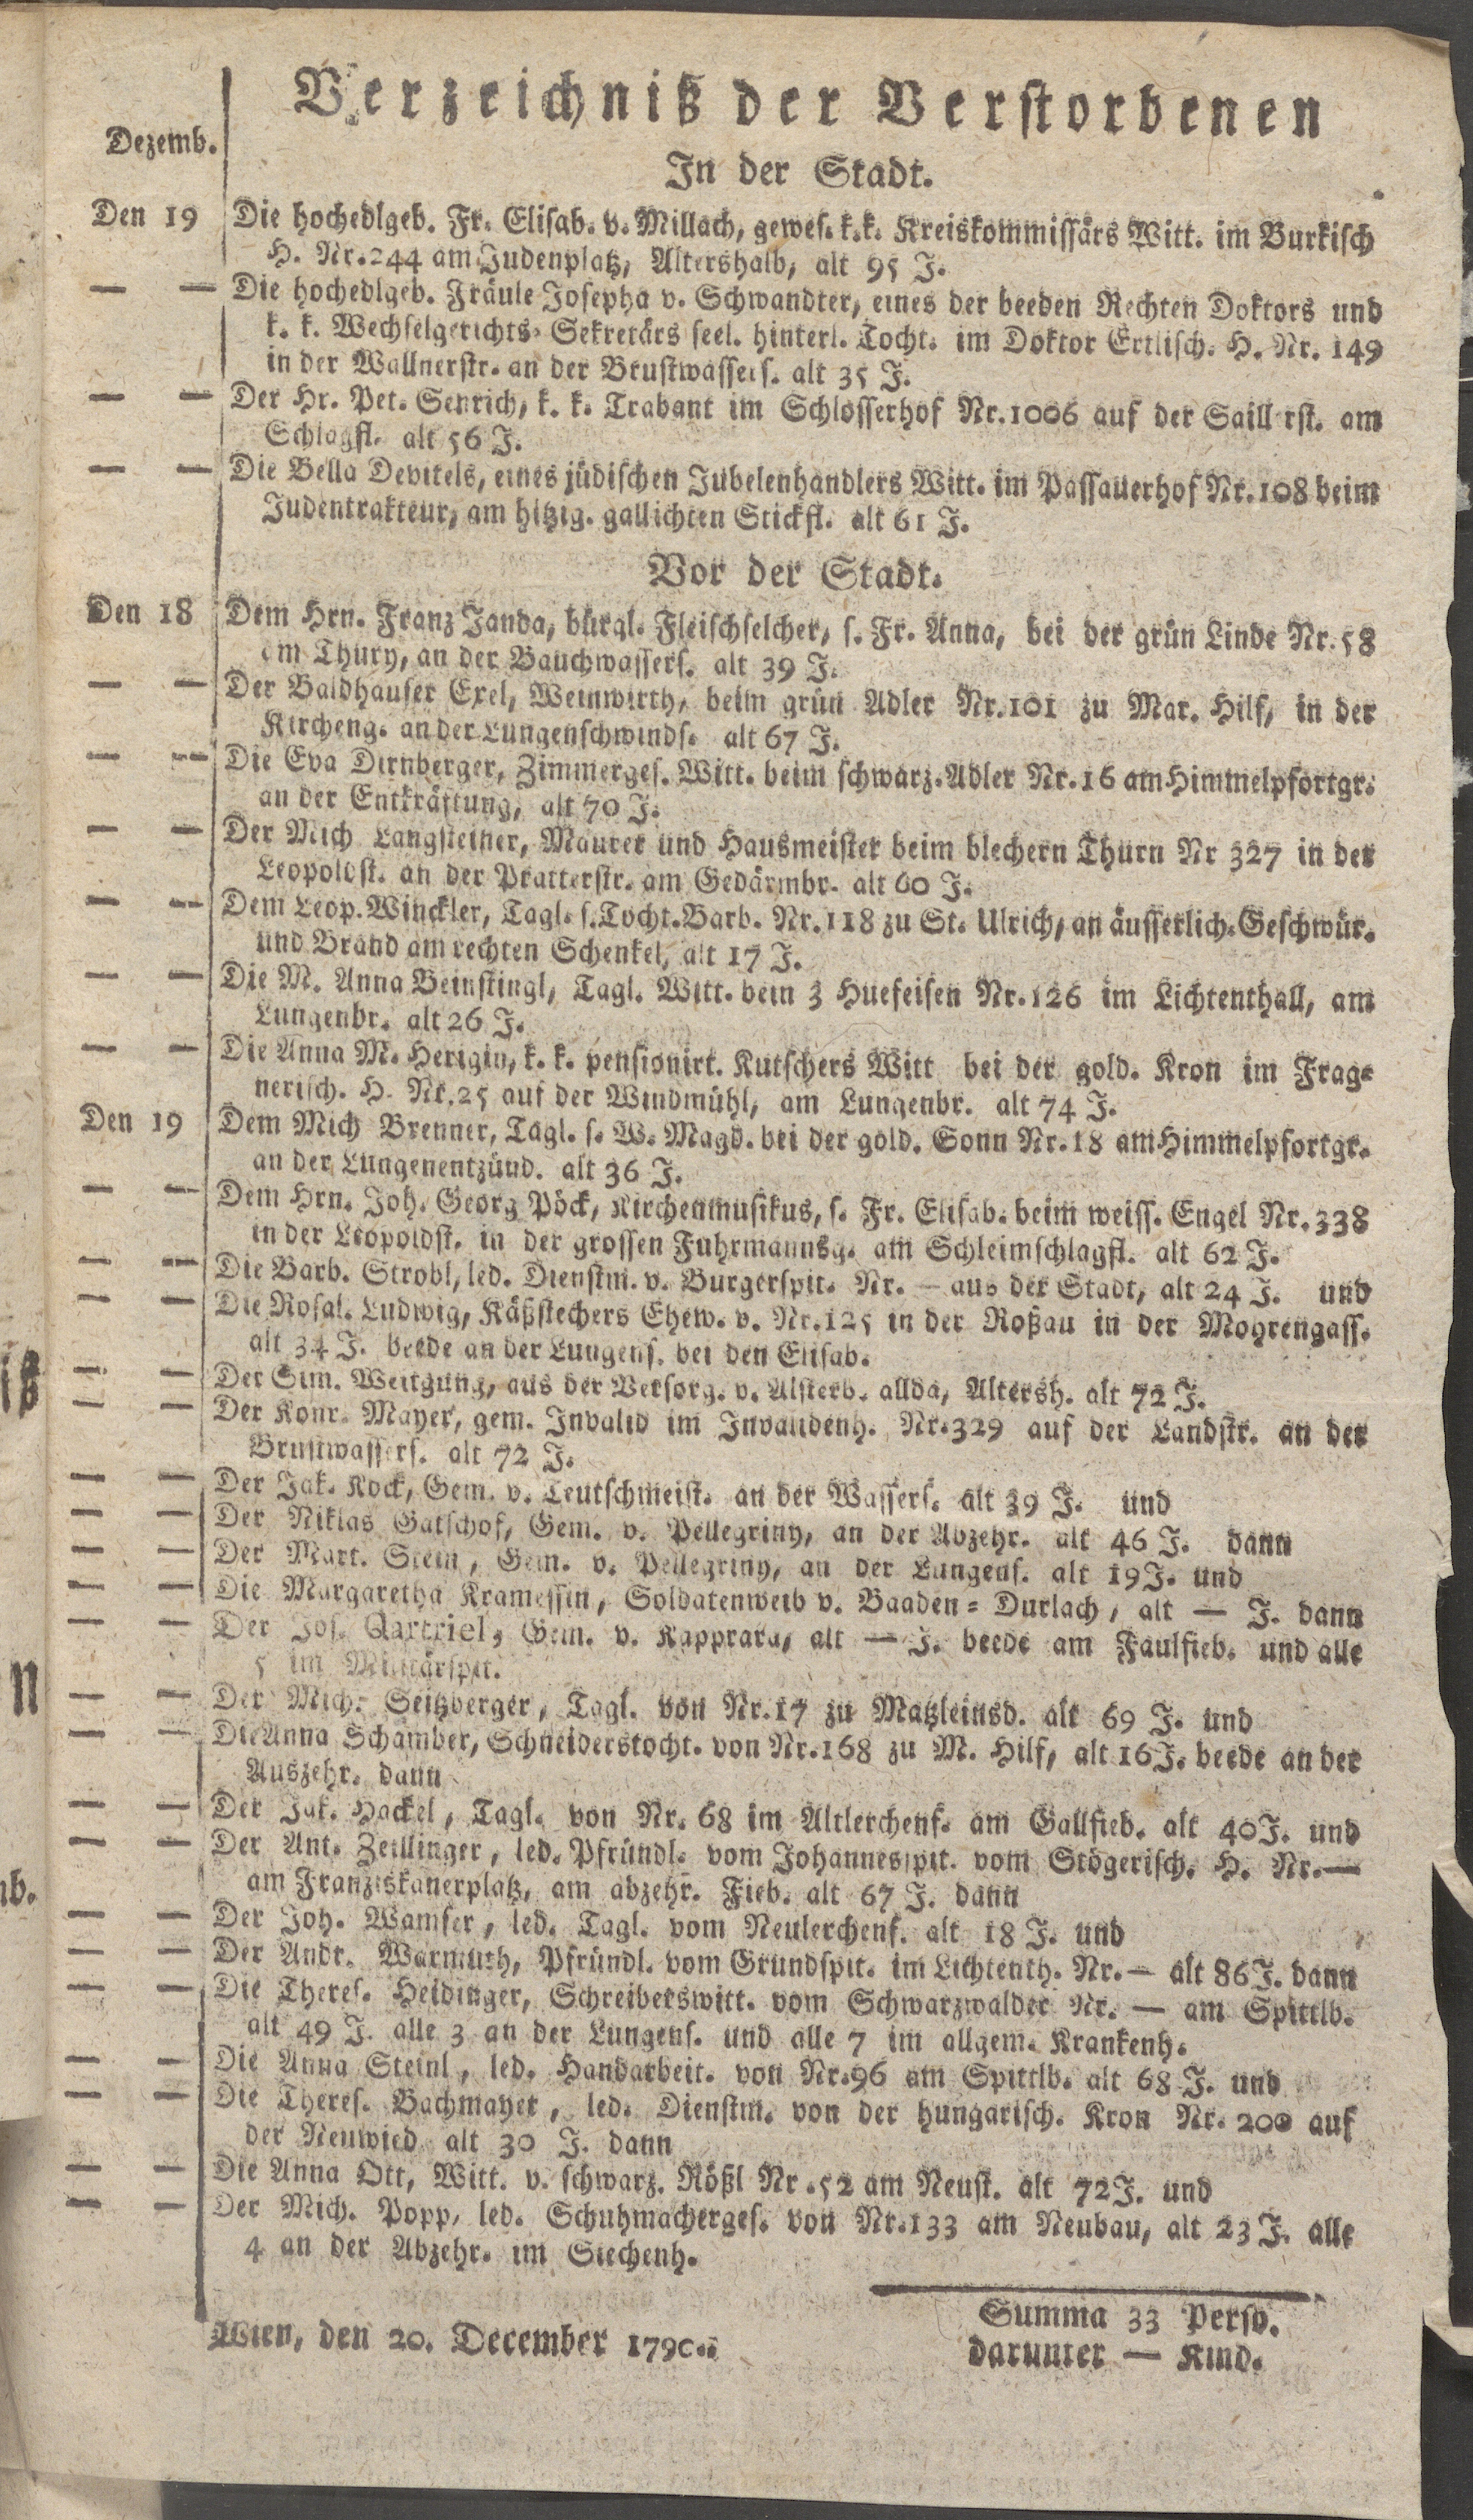 Verzeichniß der Verstorbenen
Dezemb.
In der Stadt.
Den 19 Die hochedlgeb. Fr. Elisab. v. Millach, gewes. k.k. Kreiskommissärs Witt. im Burkisch
H. Nr. 244 am Judenplatz, Altershalb, alt 95 J.
— — Die hochedlgeb. Fräule Josepha v. Schwandter, eines der beeden Rechten Doktors und
k. k. Wechselgerichts-Sekretärs seel. hinterl. Tocht. im Doktor Ertlisch. H. Nr. 149
in der Wallnerstr. an der Brustwassers. alt 35 J.
— — Der Hr. Pet. Senrich, k. k. Trabant im Schlosserhof Nr. 1006 auf der Saillerst. am
Schlagfl. alt 56 J.
— — Die Bella Devitels, eines jüdischen Jubelenhandlers Witt. im Passauerhof Nr. 108 beim
Judentrakteur, am hitzig. gallichten Stickfl. alt 61 J.
Vor der Stadt.
Den 18 Dem Hrn. Franz Janda, bürgl. Fleischselcher, s. Fr. Anna, bei der grün Linde Nr. 58
am Thury, an der Bauchwassers. alt 39 J.
— — Der Baldhauser Exel, Weinwirth, beim grün Adler Nr. 101 zu Mar. Hilf, in der
Kircheng. an der Lungenschwinds. alt 67 J.
— — Die Eva Dirnberger, Zimmerges. Witt. beim schwarz. Adler Nr. 16 am Himmelpfortgr.
an der Entkräftung, alt 70 J.
— — Der Mich Langsteiner, Maurer und Hausmeister beim blechern Thurn Nr 327 in der
Leopoldst. an der Pratterstr. am Gedärmbr. alt 60 J.
— — Dem Leop. Winckler, Tagl. s. Tocht. Barb. Nr. 118 zu St. Ulrich, an äusserlich. Geschwür.
und Brand am rechten Schenkel, alt 17 J.
— — Die M. Anna Beinstingl, Tagl. Witt. bein 3 Huefeisen Nr. 126 im Lichtenthall, am
Lungenbr. alt 26 J.
— — Die Anna M. Herigin, k. k. pensionirt. Kutschers Witt bei der gold. Kron im Frag-
nerisch. H. Nr. 25 auf der Windmühl, am Lungenbr. alt 74 J.
Den 19 Dem Mich Brenner, Tagl. s. W. Magd. bei der gold. Sonn Nr. 18 am Himmelpfortgr.
an der Lungenentzünd. alt 36 J.
— — Dem Hrn. Joh. Georg Pöck, Kirchenmusikus, s. Fr. Elisab. beim weiss. Engel Nr. 338
in der Leopoldst. in der grossen Fuhrmannsg. am Schleimschlagfl. alt 62 J.
— — Die Barb. Strobl, led. Dienstm. v. Burgerspit. Nr. — aus der Stadt, alt 24 J. und
— — Die Rosal. Ludwig, Käßstechers Ehew. v. Nr. 125 in der Roßau in der Mohrengass.
alt 34 J. beede an der Lungens. bei den Elisab.
— — Der Sim. Weitgung, aus der Versorg. v. Alsterb. allda, Altersh. alt 72 J.
— — Der Konr. Mayer, gem. Invalid im Invalidenh. Nr. 329 auf der Landstr. an der
Brustwassers. alt 72 J.
— — Der Jak. Kock, Gem. v. Teutschmeist. an der Wassers. alt 39 J. und
— — Der Niklas Gatschof, Gem. v. Pellegriny, an der Abzehr. alt 46 J. dann
— — Der Mart. Stein, Gem. v. Pellegriny, an der Lungens. alt 19 J. und
— — Die Margaretha Kramessin, Soldatenweib v. Baaden-Durlach, alt — J. dann
— — Der Jos. Qartriel, Gem. v. Kapprara, alt — J. beede am Faulfieb. und alle
5 im Militärspit.
— — Der Mich. Seitzberger, Tagl. von Nr. 17 zu Matzleinsd. alt 69 J. und
— — Die Anna Schamber, Schneiderstocht. von Nr. 168 zu M. Hilf, alt 16 J. beede an der
Auszehr. dann
— — Der Jak. Hackel, Tagl. von Nr. 68 im Altlerchenf. am Gallfieb. alt 40 J. und
— — Der Ant. Zeillinger, led. Pfründl. vom Johannesspit. vom Stögerisch. H. Nr. —
am Franziskanerplatz, am abzehr. Fieb. alt 67 J. dann
— — Der Joh. Wamser, led. Tagl. vom Neulerchenf. alt 18 J. und
— — Der Andr. Warmuth, Pfründl. vom Grundspit. im Lichtenth. Nr. — alt 86 J. dann
— — Die Theres. Heidinger, Schreiberswitt. vom Schwarzwalder Nr. — am Spittlb.
alt 49 J. alle 3 an der Lungens. und alle 7 im allgem. Krankenh.
— — Die Anna Steinl, led. Handarbeit. von Nr. 96 am Spittlb. alt 68 J. und
— — Die Theres. Bachmayer, led. Dienstm. von der hungarisch. Kron Nr. 200 auf
der Neuwied alt 30 J. dann
— — Die Anna Ott, Witt. v. schwarz. Rößl Nr. 52 am Neust. alt 72 J. und
— — Der Mich. Popp, led. Schuhmacherges. von Nr. 133 am Neubau, alt 23 J. alle
4 an der Abzehr. im Siechenh.
Summa 33 Perso.
darunter — Kind.
Wien, den 20. December 1790.